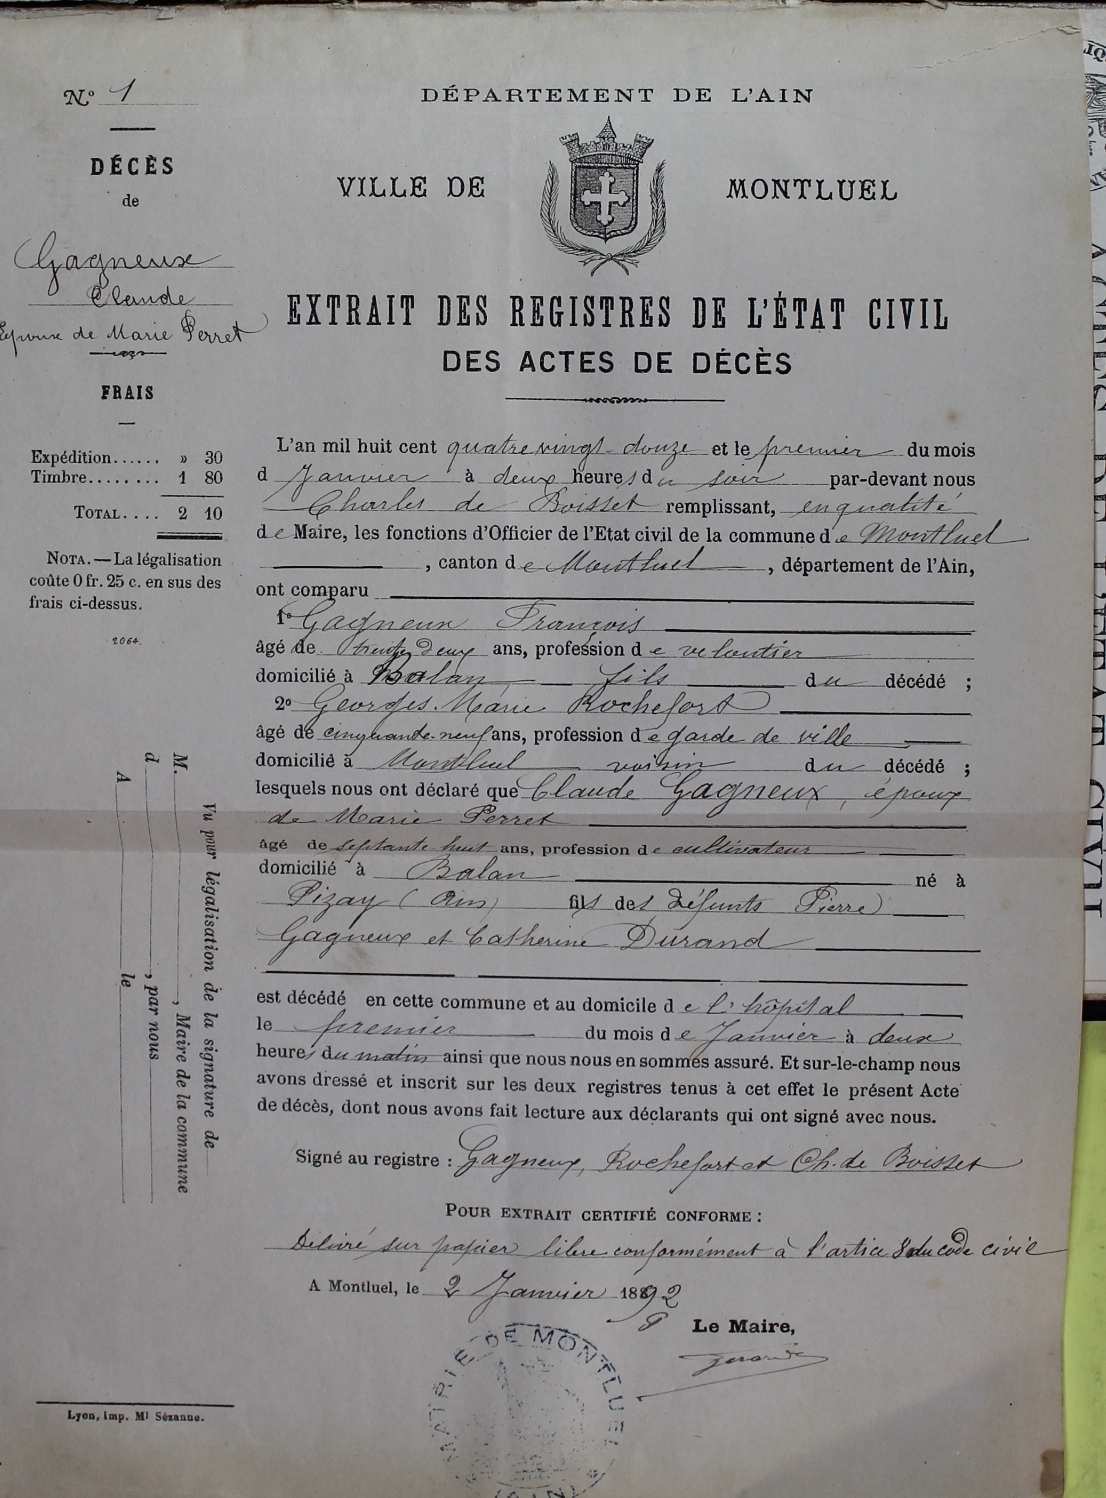 N.º 1
DÉPARTEMENT DE L'AIN
VILLE DE MONTLUEL
DÉCÈS
de
Gagneux
Claude
Epoux de Marie Perret
EXTRAIT DES REGISTRES DE L'ÉTAT CIVIL
DES ACTES DE DÉCÈS
FRAIS
Expédition...... » 30
Timbre........ 1 80
TOTAL.... 2 10
NOTA.—La légalisation
coûte 0 fr. 25 c. en sus des
frais ci-dessus.
2064
L'an mil huit cent quatre vingt douze et le premier du mois
d Janvier à deux heures du soir par-devant nous
Charles de Boisset remplissant, en qualité
de Maire, les fonctions d'Officier de l'Etat civil de la commune de Montluel
, canton de Montluel, département de l'Ain,
ont comparu
1º Gagneux François
âgé de trente deux ans, profession de veloutier
domicilié à Balan fils du décédé ;
2º Georges Marie Rochefort
âgé de cinquante neuf ans, profession de garde de ville
domicilié à Montluel voisin du décédé ;
lesquels nous ont déclaré que Claude Gagneux, époux
de Marie Perret
âgé de septante huit ans, profession de cultivateur
domicilié à Balan né à
Pizay (Ain) fils des défunts Pierre
Gagneux et Catherine Durand
est décédé en cette commune et au domicile de l'hôpital
le premier du mois de Janvier à deux
heures du matin ainsi que nous nous en sommes assuré. Et sur-le-champ nous
avons dressé et inscrit sur les deux registres tenus à cet effet le présent Acte
de décès, dont nous avons fait lecture aux déclarants qui ont signé avec nous.
Signé au registre : Gagneux, Rochefort et Ch. de Boisset
POUR EXTRAIT CERTIFIÉ CONFORME :
Délivré sur papier libre conformément à l'artice 8 du code civil
A Montluel, le 2 Janvier 1892
Le Maire,
MAIRIE DE MONTLUEL
(AIN)
Vu pour légalisation de la signature de
M. , Maire de la commune
d , par nous
A le
Lyon, imp. Ml Sézanne.